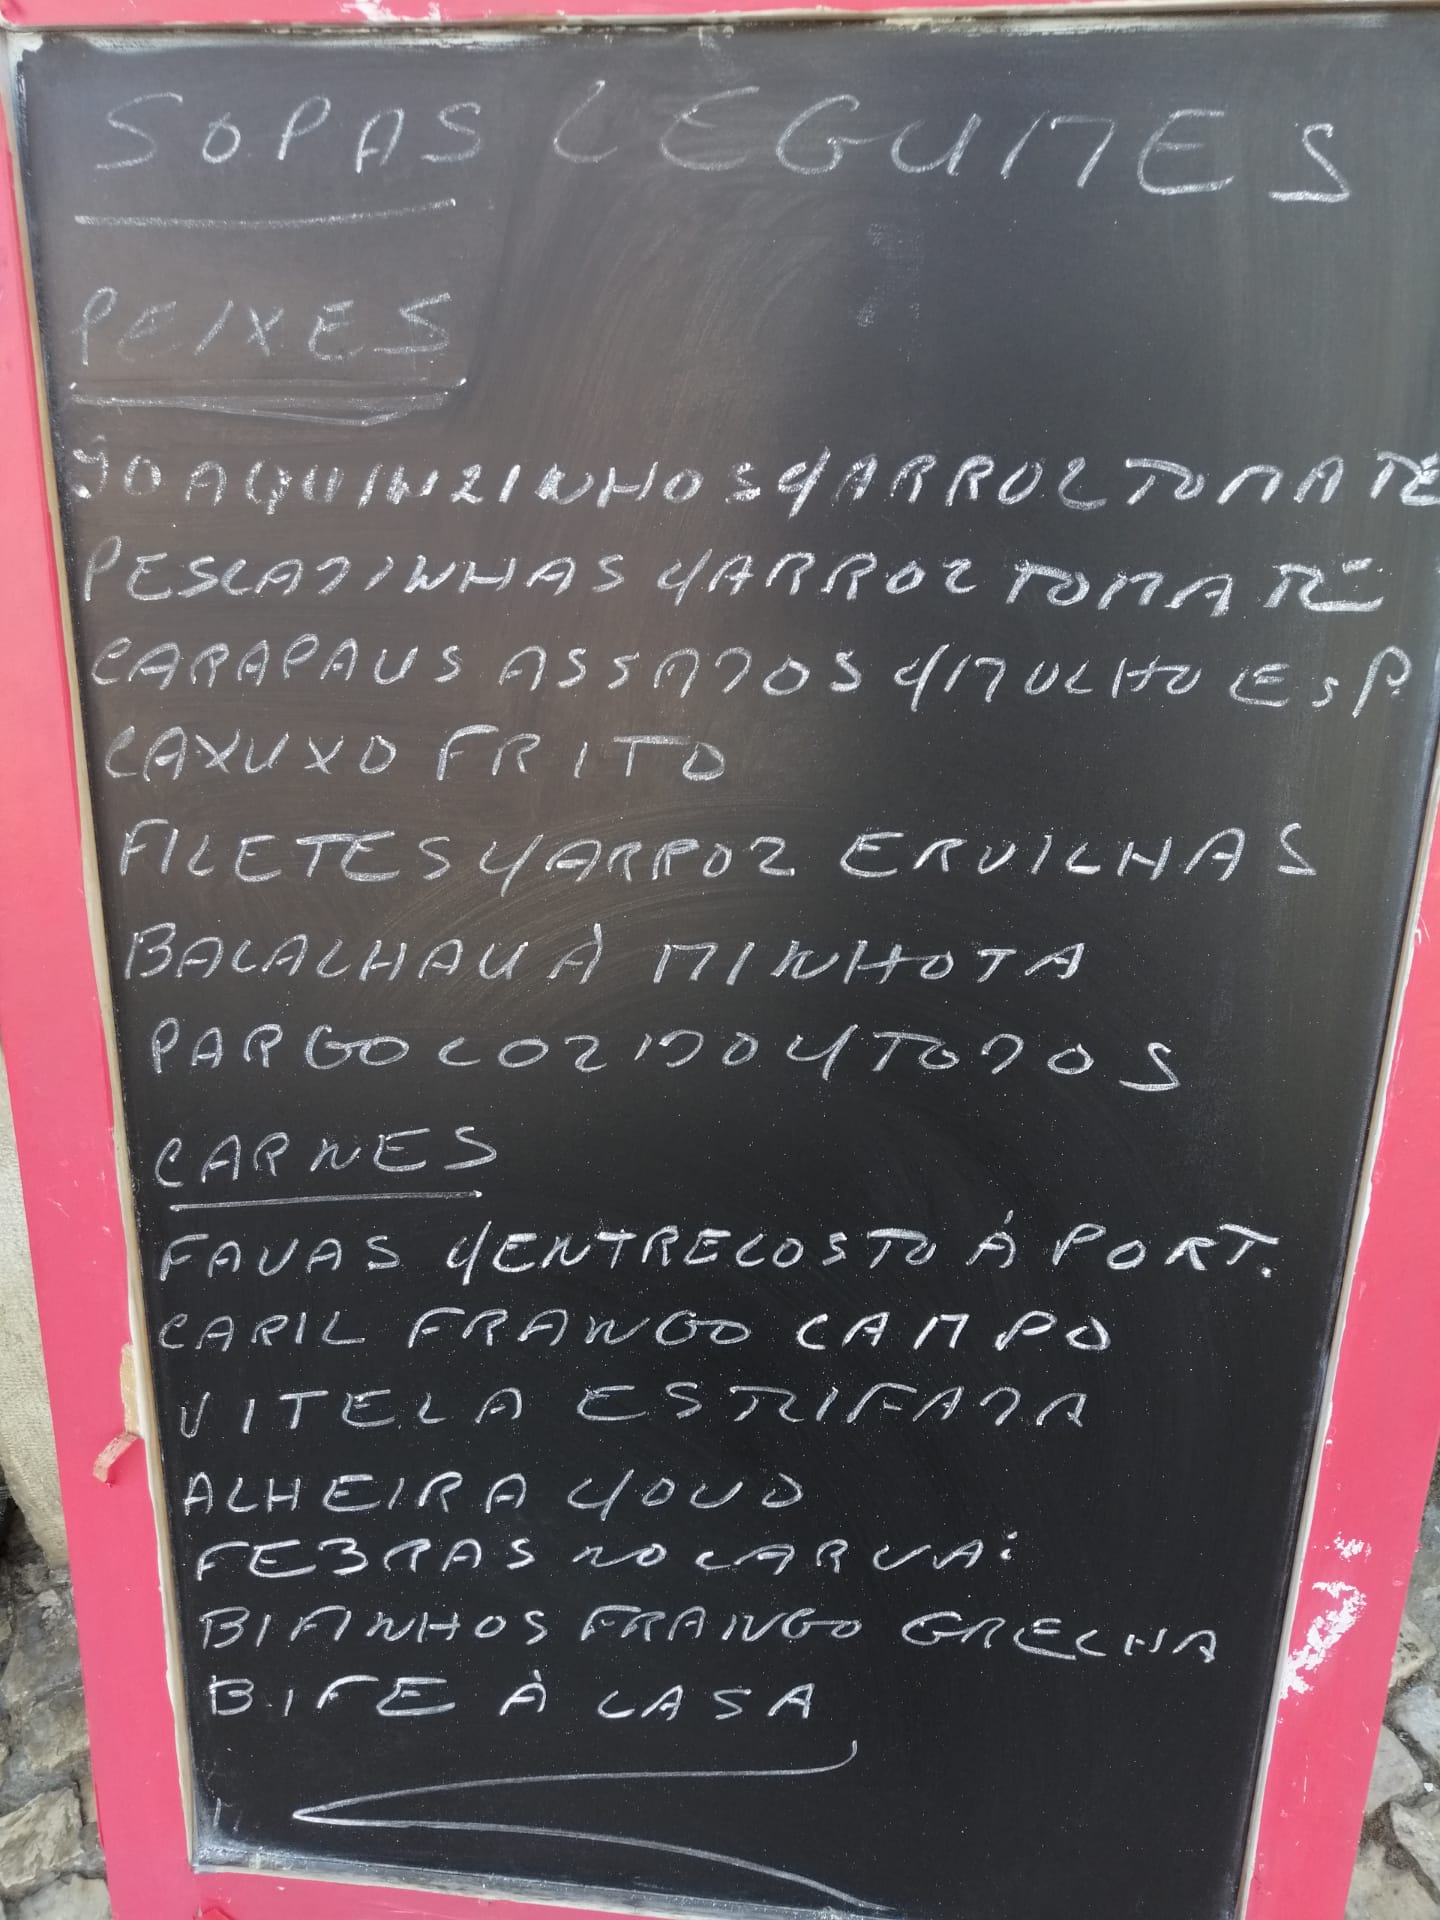 SOPAS LEGUMES
PEIXES
JOAQUINZINHOS C/ARROZ TOMATE
PESCADINHAS C/ARROZ TOMATE
CARAPAUS ASSADOS C/MOLHO ESP.
CAXUXO FRITO
FILETES C/ARROZ ERVILHAS
BACALHAU À MINHOTA
PARGO COZIDO C/TODOS
CARNES
FAVAS C/ENTRECOSTO À PORT.
CARIL FRANGO CAMPO
VITELA ESTRIFADA
ALHEIRA C/OVO
FEBRAS NO CARVA:
BIFINHOS FRANGO GRELHA
BIFE À CASA